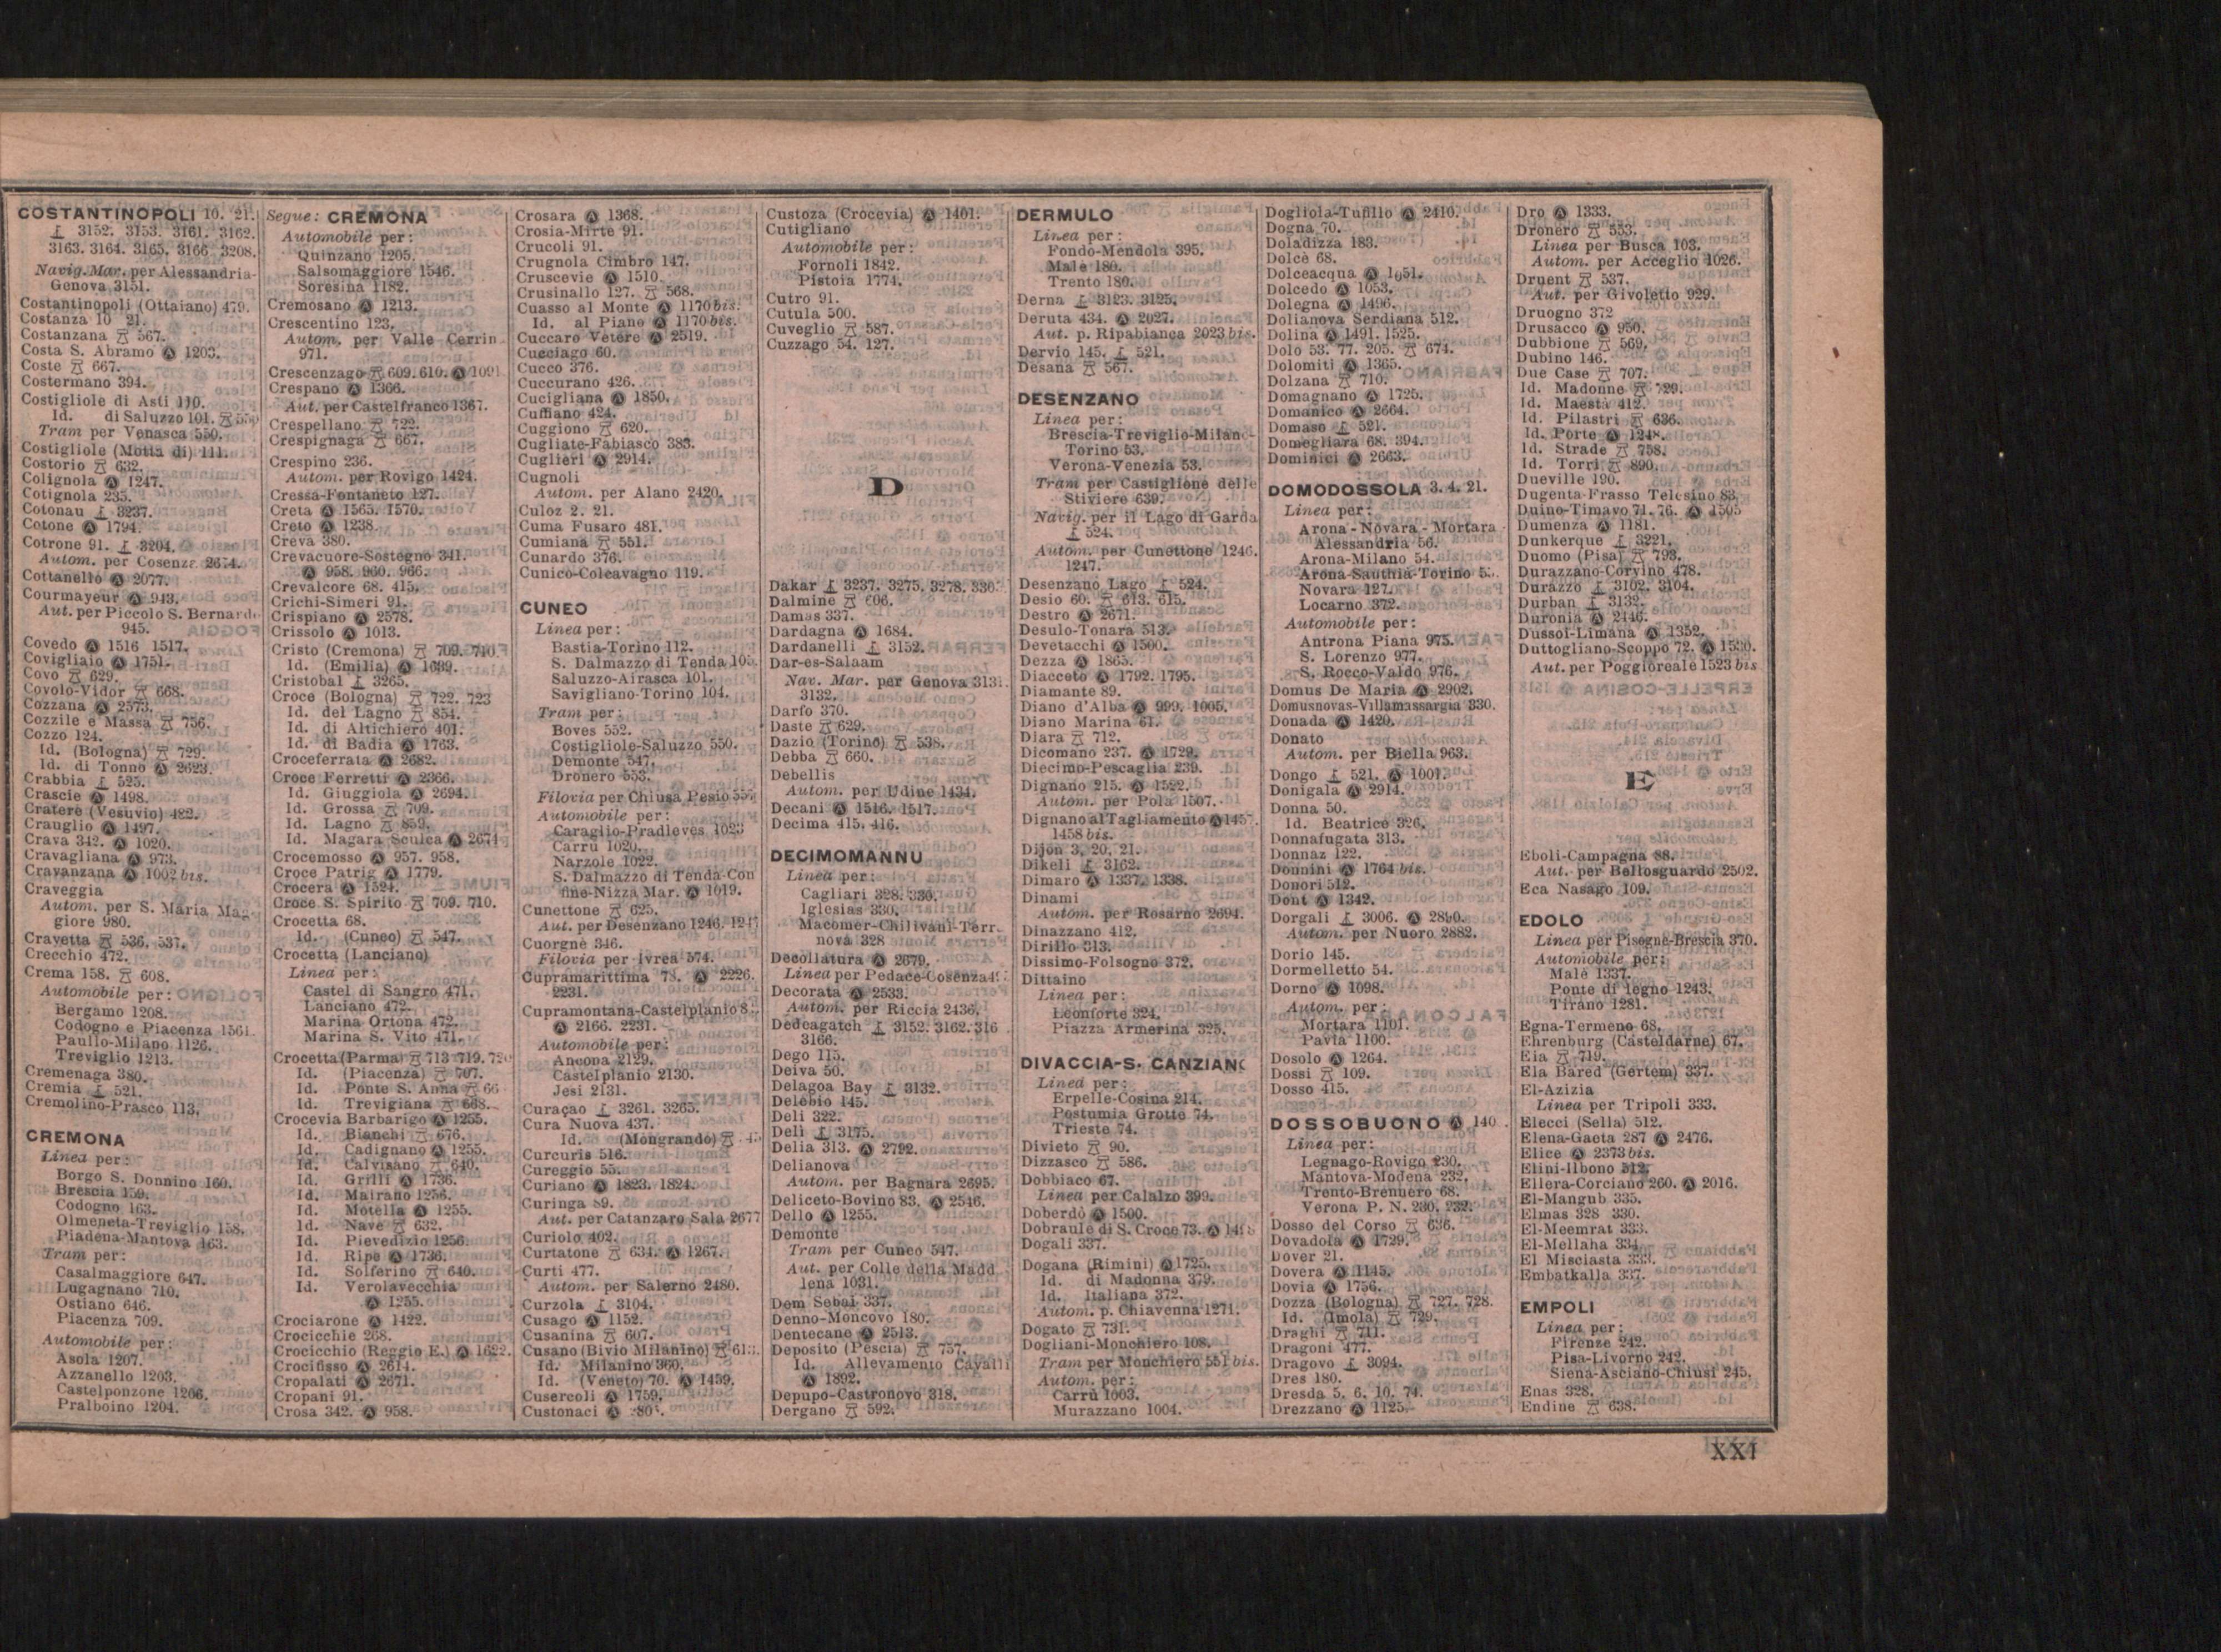 COSTANTINOPOLI 10. 21.
3152. 3153. 3161. 3162.
3163. 3164. 3165. 3166. 3208.
Navig. Mar. per Alessandria-
Genova 3151.
Costantinopoli (Ottaiano) 479.
Costanza 10 21.
Costanzana 567.
Costa S. Abramo Ⓐ 1203.
Coste 667.
Costermano 394.
Costigliole di Asti 110.
Id. di Saluzzo 101.
Tram per Venasca 550.
Costigliole (Motta di) 111.
Costorio 632.
Colignola Ⓐ 1247.
Cotignola 235.
Cotonau 3237.
Cotone Ⓐ 1794.
Cotrone 91. 3204.
Autom. per Cosenza 2674.
Cottanello Ⓐ 2077.
Courmayeur Ⓐ 943.
Aut. per Piccolo S. Bernardo
945.
Covedo Ⓐ 1516 1517.
Covigliaio Ⓐ 1751.
Covo 629.
Covolo-Vidor 668.
Cozzana Ⓐ 2573.
Cozzile e Massa 756.
Cozzo 124.
Id. (Bologna) 729.
Id. di Tonno Ⓐ 2623.
Crabbia 525.
Crascie Ⓐ 1498.
Cratere (Vesuvio) 482.
Crauglio Ⓐ 1497.
Crava 342. Ⓐ 1020.
Cravagliana Ⓐ 973.
Cravanzana Ⓐ 1002 bis.
Craveggia
Autom. per S. Maria Mag-
giore 980.
Cravetta 536. 537.
Crecchio 472.
Crema 158. 608.
Automobile per:
Bergamo 1208.
Codogno e Piacenza 1561.
Paullo-Milano 1126.
Treviglio 1213.
Cremenaga 380.
Cremia 521.
Cremolino-Prasco 113.
CREMONA
Linea per:
Borgo S. Donnino 160.
Brescia 159.
Codogno 163.
Olmeneta-Treviglio 158.
Piadena-Mantova 163.
Tram per:
Casalmaggiore 647.
Lugagnano 710.
Ostiano 646.
Piacenza 709.
Automobile per:
Asola 1207.
Azzanello 1203.
Castelponzone 1206.
Pralboino 1204.
Segue: CREMONA
Automobile per:
Quinzano 1205.
Salsomaggiore 1546.
Soresina 1182.
Cremosano Ⓐ 1213.
Crescentino 123.
Autom. per Valle Cerrin
971.
Crescenzago 609. 610. Ⓐ 1091
Crespano Ⓐ 1366.
Aut. per Castelfranco 1367.
Crespellano 722.
Crespignaga 667.
Crespino 236.
Autom. per Rovigo 1424.
Cressa-Fontaneto 127.
Creta Ⓐ 1565. 1570.
Creto Ⓐ 1238.
Creva 380.
Crevacuore-Sostegno 341.
Ⓐ 958. 960. 966.
Crevalcore 68. 415.
Crichi-Simeri 91.
Crispiano Ⓐ 2578.
Crissolo Ⓐ 1013.
Cristo (Cremona) 709. 710.
Id. (Emilia) Ⓐ 1689.
Cristobal 3265.
Croce (Bologna) 722. 723
Id. del Lagno 854.
Id. di Altichiero 401.
Id. di Badia Ⓐ 1763.
Croceferrata Ⓐ 2682.
Croce Ferretti Ⓐ 2366.
Id. Giuggiola Ⓐ 2694.
Id. Grossa 709.
Id. Lagno 859.
Id. Magara Sculca Ⓐ 2674
Crocemosso Ⓐ 957. 958.
Croce Patrig Ⓐ 1779.
Crocera Ⓐ 1524.
Croce S. Spirito 709. 710.
Crocetta 68.
Id. (Cuneo) 547.
Crocetta (Lanciano)
Linea per:
Castel di Sangro 471.
Lanciano 472.
Marina Ortona 472.
Marina S. Vito 471.
Crocetta (Parma) 713 719. 720
Id. (Piacenza) 707.
Id. Ponte S. Anna
Id. Trevigiana 668.
Crocevia Barbarigo Ⓐ 1255.
Id. Bianchi 676.
Id. Cadignano Ⓐ 1255.
Id. Calvisano 640.
Id. Grilli Ⓐ 1736.
Id. Mairano 1256.
Id. Motella Ⓐ 1255.
Id. Nave 632.
Id. Pievedizio 1256.
Id. Ripe Ⓐ 1736.
Id. Solferino 640.
Id. Verolavecchia
Ⓐ 1255.
Crociarone Ⓐ 1422.
Crocicchie 268.
Crocicchio (Reggio E.) Ⓐ 1622.
Crocifisso Ⓐ 2614.
Cropalati Ⓐ 2671.
Cropani 91.
Crosa 342. Ⓐ 958.
Crosara Ⓐ 1368.
Crosia-Mirte 91.
Crucoli 91.
Crugnola Cimbro 147.
Cruscevie Ⓐ 1510.
Crusinallo 127. 568.
Cuasso al Monte Ⓐ 1170 bis.
Id. al Piano Ⓐ 1170 bis.
Cuccaro Vetere Ⓐ 2519.
Cucciago 60.
Cucco 376.
Cuccurano 426.
Cucigliana Ⓐ 1850.
Cuffiano 424.
Cuggiono 620.
Cugliate-Fabiasco 383.
Cuglieri Ⓐ 2914.
Cugnoli
Autom. per Alano 2420.
Culoz 2. 21.
Cuma Fusaro 481.
Cumiana 551.
Cunardo 376.
Cunico-Colcavagno 119.
CUNEO
Linea per:
Bastia-Torino 112.
S. Dalmazzo di Tenda
Saluzzo-Airasca 101.
Savigliano-Torino 104.
Tram per:
Boves 552.
Costigliole-Saluzzo 550.
Demonte 547.
Dronero 553.
Filovia per Chiusa Pesio
Automobile per:
Caraglio-Pradleves 1023
Carrù 1020.
Narzole 1022.
S. Dalmazzo di Tenda-Con
fine-Nizza Mar. Ⓐ 1019.
Cunettone 625.
Aut. per Desenzano 1246. 1247
Cuorgnè 346.
Filovia per Ivrea 574.
Cupramarittima 73. Ⓐ 2226.
2231.
Cupramontana-Castelplanio
Ⓐ 2166. 2231.
Automobile per:
Ancona 2129.
Castelplanio 2130.
Jesi 2131.
Curaçao 3261. 3265.
Cura Nuova 437.
Id. (Mongrando)
Curcuris 516.
Cureggio 55.
Curiano Ⓐ 1823. 1824.
Curinga 89.
Aut. per Catanzaro Sala 2677
Curiolo 402.
Curtatone 634. Ⓐ 1267.
Curti 477.
Autom. per Salerno 2480.
Curzola 3104.
Cusago Ⓐ 1152.
Cusanina 607.
Cusano (Bivio Milanino)
Id. Milanino 360.
Id. (Veneto) 70. Ⓐ 1459.
Cusercoli Ⓐ 1759.
Custonaci Ⓐ
Custoza (Crocevia) Ⓐ 1401.
Cutigliano
Automobile per:
Fornoli 1842.
Pistoia 1774.
Cutro 91.
Cutula 500.
Cuveglio 587.
Cuzzago 54. 127.
D
Dakar 3237. 3275. 3278.
Dalmine 606.
Damas 337.
Dardagna Ⓐ 1684.
Dardanelli 3152.
Dar-es-Salaam
Nav. Mar. per Genova
3132.
Darfo 370.
Daste 629.
Dazio (Torino) 538.
Debba 660.
Debellis
Autom. per Udine 1434.
Decani Ⓐ 1516. 1517.
Decima 415. 416.
DECIMOMANNU
Linea per:
Cagliari 328. 330.
Iglesias 330.
Macomer-Chilivani-Terr
nova 328
Decollatura Ⓐ 2679.
Linea per Pedace-Cosenza
Decorata Ⓐ 2533.
Autom. per Riccia 2436.
Dedeagatch 3152. 3162.
3166.
Dego 115.
Deiva 50.
Delagoa Bay 3132.
Delebio 145.
Deli 322.
Delì 3175.
Delia 313. Ⓐ 2792.
Delianova
Autom. per Bagnara 2695.
Deliceto-Bovino 83. Ⓐ 2546.
Dello Ⓐ 1255.
Demonte
Tram per Cuneo 547.
Aut. per Colle della Madd
lena 1031.
Dem Sebai 337.
Denno-Moncovo 180.
Dentecane Ⓐ 2513.
Deposito (Pescia) 757.
Id. Allevamento Cavalli
Ⓐ 1892.
Depupo-Castronovo 318.
Dergano 592.
DERMULO
Linea per:
Fondo-Mendola 395.
Malè 180.
Trento 180.
Derna 3123. 3125.
Deruta 434. Ⓐ 2027.
Aut. p. Ripabianca 2023 bis.
Dervio 145. 521.
Desana 567.
DESENZANO
Linea per:
Brescia-Treviglio-Milano-
Torino 53.
Verona-Venezia 53.
Tram per Castiglione delle
Stiviere 639.
Navig. per il Lago di Garda
524.
Autom. per Cunettone 1246.
1247.
Desenzano Lago 524.
Desio 60. 613. 615.
Destro Ⓐ 2671.
Desulo-Tonara 513.
Devetacchi Ⓐ 1500.
Dezza Ⓐ 1865.
Diacceto Ⓐ 1792. 1795.
Diamante 89.
Diano d'Alba Ⓐ 999. 1005.
Diano Marina 61.
Diara 712.
Dicomano 237. Ⓐ 1729.
Diecimo-Pescaglia 239.
Dignano 215. Ⓐ 1522.
Autom. per Pola 1507.
Dignano al Tagliamento Ⓐ 1457.
1458 bis.
Dijon 3. 20. 21.
Dikeli 3162.
Dimaro Ⓐ 1337. 1338.
Dinami
Autom. per Rosarno 2694.
Dinazzano 412.
Dirillo 313.
Dissimo-Folsogno 372.
Dittaino
Linea per:
Leonforte 324.
Piazza Armerina 325.
DIVACCIA-S. CANZIANO
Linea per:
Erpelle-Cosina 214.
Postumia Grotte 74.
Trieste 74.
Divieto 90.
Dizzasco 586.
Dobbiaco 67.
Linea per Calalzo 399.
Doberdò Ⓐ 1500.
Dobraule di S. Croce 73. Ⓐ
Dogali 337.
Dogana (Rimini) Ⓐ 1725.
Id. di Madonna 379.
Id. Italiana 372.
Autom. p. Chiavenna 1271.
Dogato 731.
Dogliani-Monchiero 108.
Tram per Monchiero 551 bis.
Autom. per:
Carrù 1003.
Murazzano 1004.
Dogliola-Tufillo Ⓐ 2410.
Dogna 70.
Doladizza 183.
Dolcè 68.
Dolceacqua Ⓐ 1051.
Dolcedo Ⓐ 1053.
Dolegna Ⓐ 1496.
Dolianova Serdiana 512.
Dolina Ⓐ 1491. 1525.
Dolo 53. 77. 205. 674.
Dolomiti Ⓐ 1365.
Dolzana 710.
Domagnano Ⓐ 1725.
Domanico Ⓐ 2664.
Domaso 521.
Domegliara 68. 394.
Dominici Ⓐ 2663.
DOMODOSSOLA 3. 4. 21.
Linea per:
Arona-Novara-Mortara-
Alessandria 56.
Arona-Milano 54.
Arona-Santhià-Torino
Novara 127.
Locarno 372.
Automobile per:
Antrona Piana 975.
S. Lorenzo 977.
S. Rocco-Valdo 976.
Domus De Maria Ⓐ 2902.
Domusnovas-Villamassargia 330.
Donada Ⓐ 1420.
Donato
Autom. per Biella 963.
Dongo 521. Ⓐ 1001.
Donigala Ⓐ 2914.
Donna 50.
Id. Beatrice 326.
Donnafugata 313.
Donnaz 122.
Donnini Ⓐ 1764 bis.
Donori 512.
Dont Ⓐ 1342.
Dorgali 3006. Ⓐ 2890.
Autom. per Nuoro 2882.
Dorio 145.
Dormelletto 54.
Dorno Ⓐ 1098.
Autom. per:
Mortara 1101.
Pavia 1100.
Dosolo Ⓐ 1264.
Dossi 109.
Dosso 415.
DOSSOBUONO Ⓐ 140
Linea per:
Legnago-Rovigo 230.
Mantova-Modena 232.
Trento-Brennero 68.
Verona P. N. 230. 232.
Dosso del Corso 636.
Dovadola Ⓐ 1729.
Dover 21.
Dovera Ⓐ 1145.
Dovia Ⓐ 1756.
Dozza (Bologna) 727. 728.
Id. (Imola) 729.
Draghi 711.
Dragoni 477.
Dragovo 3094.
Dres 180.
Dresda 5. 6. 10. 74.
Drezzano Ⓐ 1125.
Dro Ⓐ 1333.
Dronero 553.
Linea per Busca 103.
Autom. per Acceglio 1026.
Druent 537.
Aut. per Givoletto 929.
Druogno 372
Drusacco Ⓐ 950.
Dubbione 569.
Dubino 146.
Due Case 707.
Id. Madonne 729.
Id. Maestà 412.
Id. Pilastri 636.
Id. Porte Ⓐ 1248.
Id. Strade 758.
Id. Torri 890.
Dueville 190.
Dugenta-Frasso Telesino 83.
Duino-Timavo 71. 76. Ⓐ 1505
Dumenza Ⓐ 1181.
Dunkerque 3221.
Duomo (Pisa) 793.
Durazzano-Corvino 478.
Durazzo 3102. 3104.
Durban 3132.
Duronia Ⓐ 2446.
Dussoi-Limana Ⓐ 1352.
Duttogliano-Scoppo 72. Ⓐ
Aut. per Poggioreale 1523 bis
E
Eboli-Campagna 88.
Aut. per Bellosguardo 2502.
Eca Nasago 109.
EDOLO
Linea per Pisogne-Brescia 370.
Automobile per:
Malè 1337.
Ponte di legno 1243.
Tirano 1281.
Egna-Termeno 68.
Ehrenburg (Casteldarne) 67.
Eia 719.
Ela Bared (Gertem) 337.
El-Azizia
Linea per Tripoli 333.
Elecci (Sella) 512.
Elena-Gaeta 287 Ⓐ 2476.
Elice Ⓐ 2373 bis.
Elini-Ilbono 512.
Ellera-Corciano 260. Ⓐ 2016.
El-Mangub 335.
Elmas 328 330.
El-Meemrat 333.
El-Mellaha 334.
El Misciasta 333.
Embatkalla 337.
EMPOLI
Linea per:
Firenze 242.
Pisa-Livorno 242.
Siena-Asciano-Chiusi 245.
Enas 328.
Endine 638.
XXI